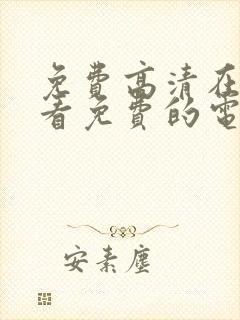 免費高清在
看免費的電
安素塵